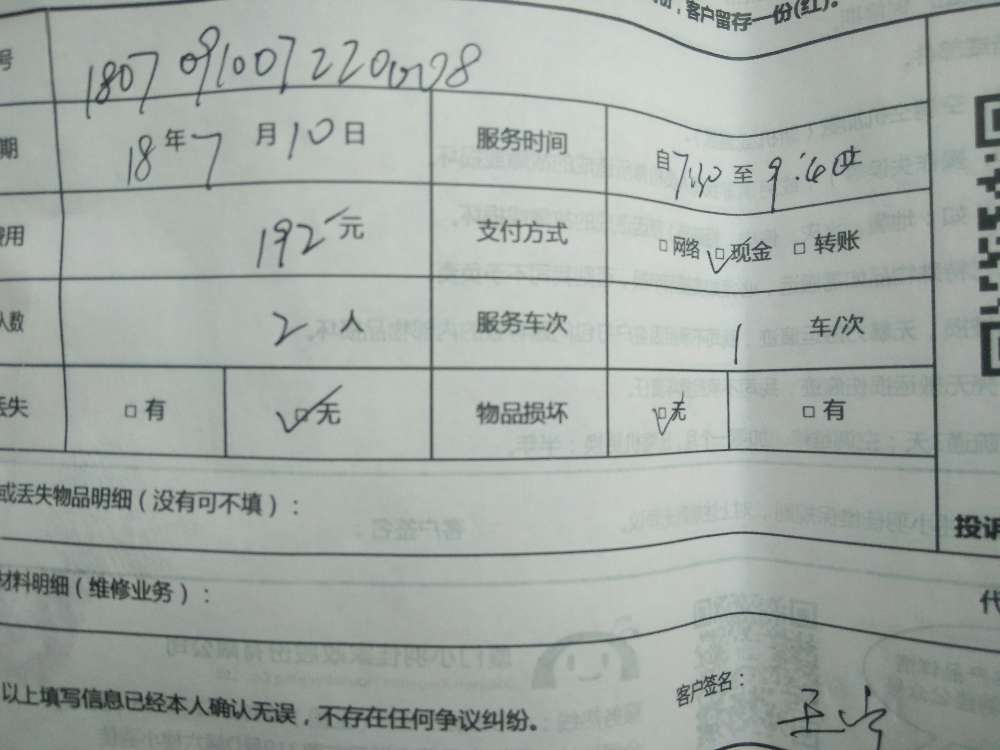 客户留存一份(红)。
号 1807091007220008
期 18年7月10日 服务时间 自7:30至9:40止
费用 192元 支付方式 □网络 ☑现金 □转账
人数 2人 服务车次 1车/次
丢失 □有 ☑无 物品损坏 ☑无 □有
或丢失物品明细（没有可不填）：
投诉
材料明细（维修业务）：
代
以上填写信息已经本人确认无误，不存在任何争议纠纷。
客户签名：